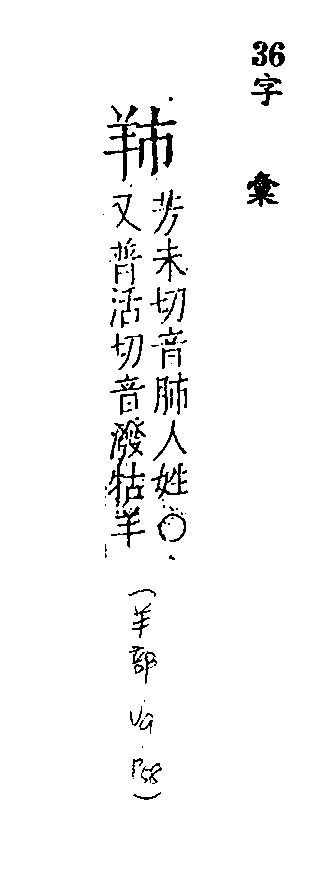 36
字彙
芳未切音肺人姓○
又普活切音潑牯羊
(羊部 P58)